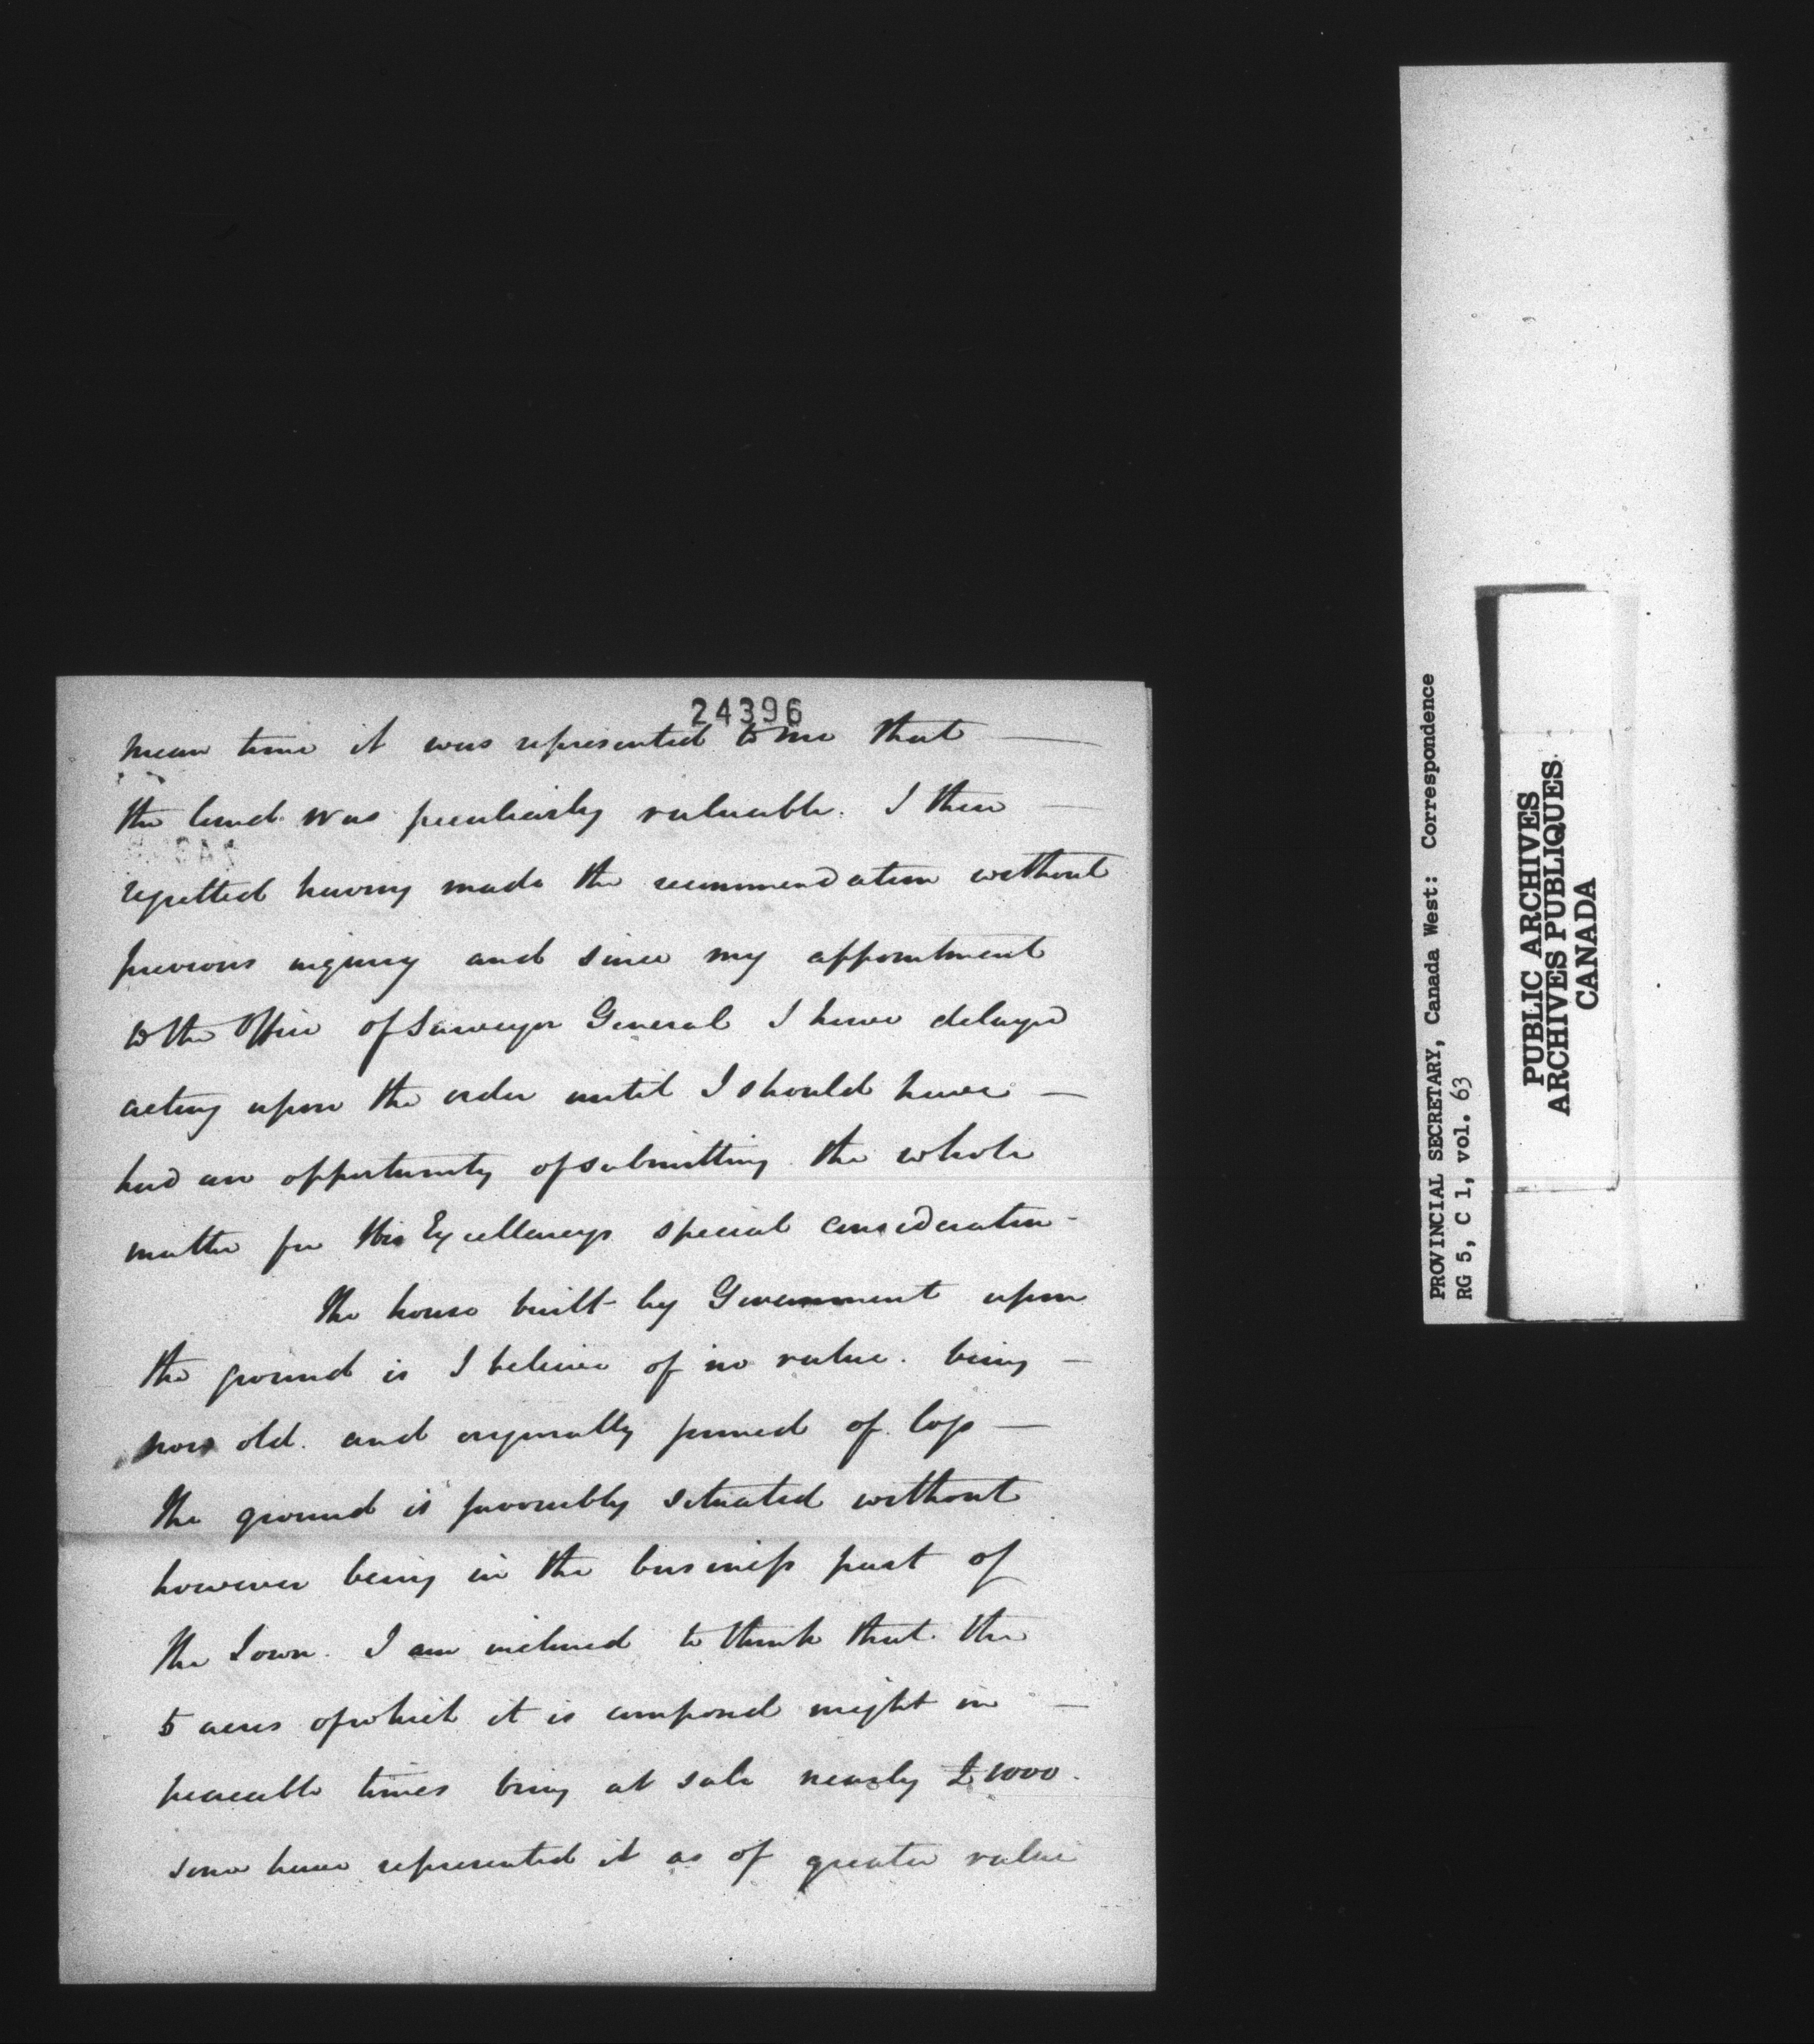 24396
mean time it was represented to me that —
the land was peculiarly valuable. I then —
regretted having made the recommendation without
previous inquiry and since my appointment
to the Office of Surveyor General I have delayed
acting upon the order until I should have —
had an opportunity of submitting the whole
matter for His Excellencys special consideration -
The house built by Government upon
the ground is I believe of no value. being —
now old. and originally formed of logs —
The ground is favorably situated without
however being in the business part of
the Town. I am inclined to think that the
5 acres of which it is composed might in —
peaceable times bring at sale nearly £1000.
some have represented it as of greater value
PROVINCIAL SECRETARY, Canada West: Correspondence
RG 5, C 1, vol. 63
PUBLIC ARCHIVES
ARCHIVES PUBLIQUES
CANADA